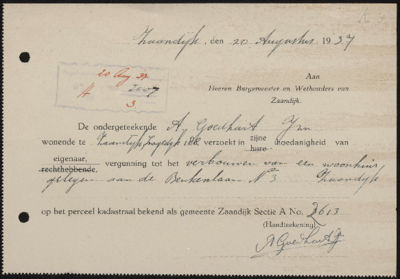 Zaandijk, den 20 Augustus 1937
20 Aug. 37
A 2107
3.
Aan
Heeren Burgemeester en Wethouders van
Zaandijk.
De ondergeteekende A. Goedhart Jzn
wonende te Zaandijk, verzoekt in zijne hare hoedanigheid van
eigenaar, rechthebbende, vergunning tot het verbouwen van een woonhuis,
gelegen aan de Beukenlaan No 3 Zaandijk
op het perceel kadastraal bekend als gemeente Zaandijk Sectie A No. 2613
(Handteekening)
A Goedhart Jz